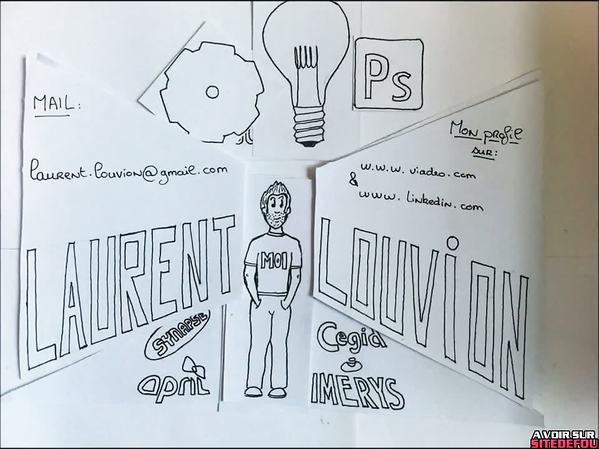 Ps
MAIL:
laurent.louvion@gmail.com
Mon profil
sur:
w.w.w. viadeo.com
&
www. linkedin.com
LAURENT
MOI
LOUViON
SYNAPSE
april
Cegid
&
IMERYS
A VOIR SUR
SITEDEFOU